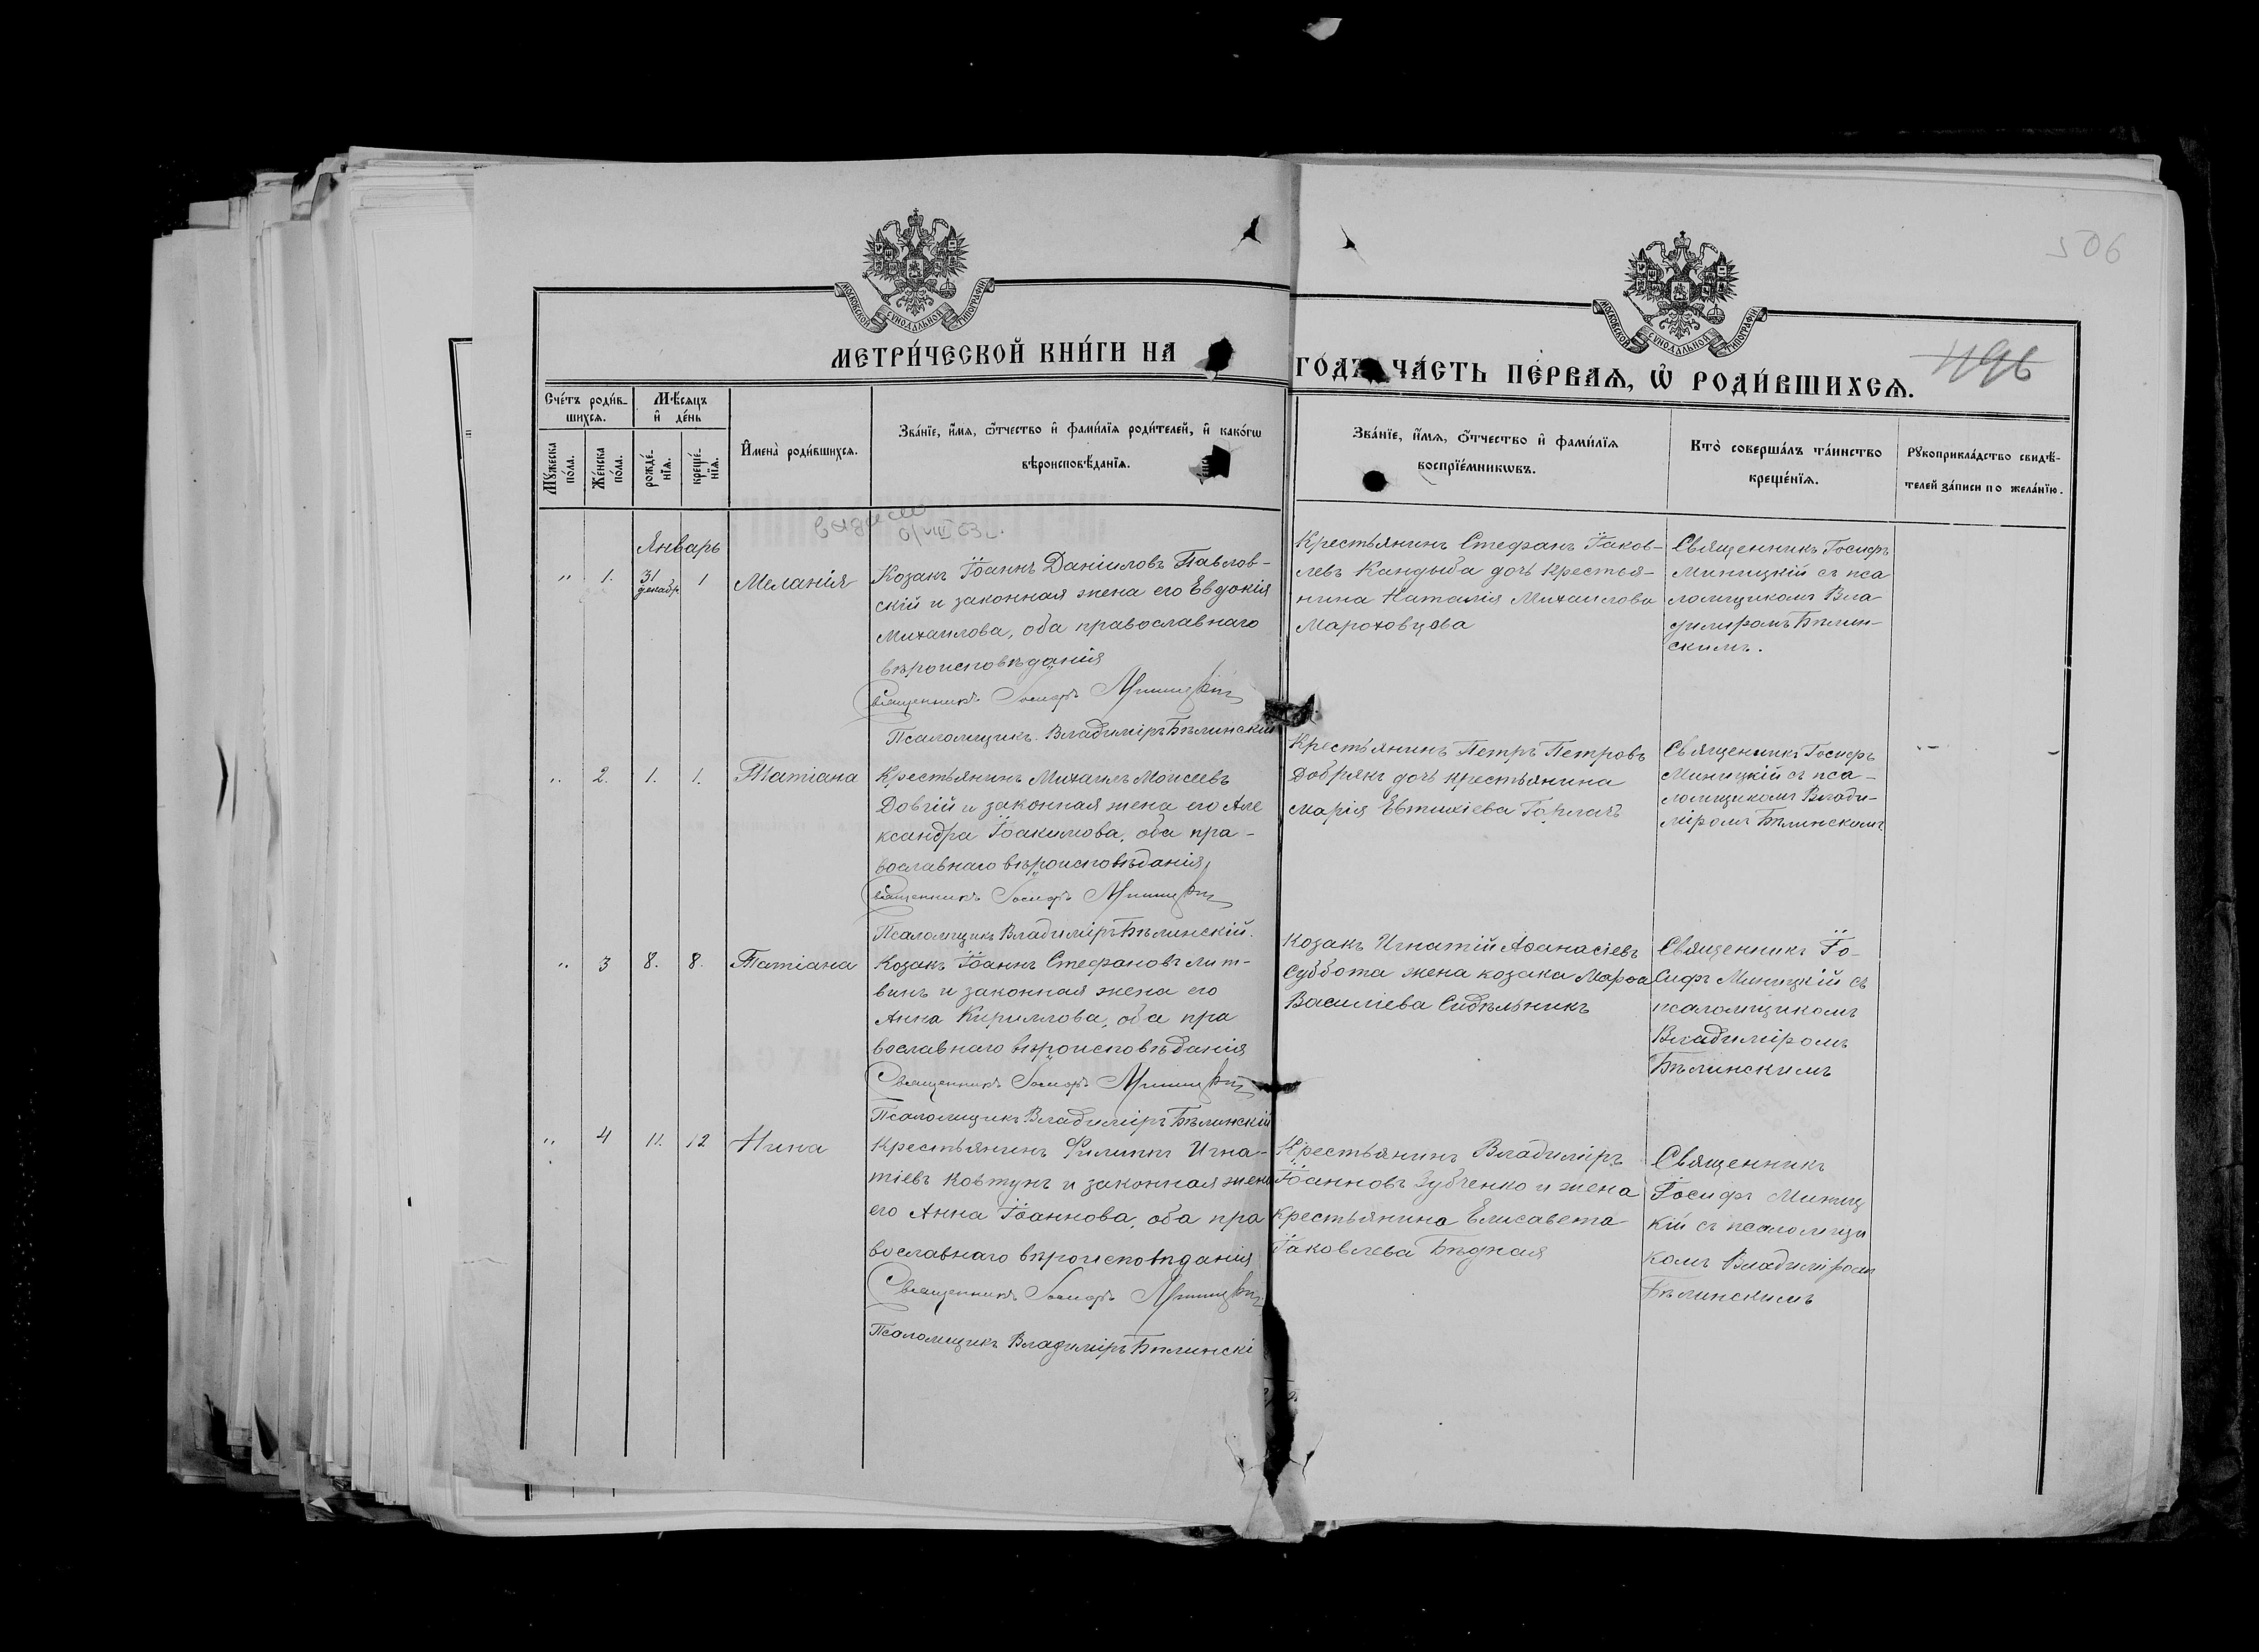 506
МОСКОВСКОЙ СѴНОДАЛЬНОЙ ТИПОГРАФІИ
МОСКОВСКОЙ СѴНОДАЛЬНОЙ ТИПОГРАФІИ
МЕТРИ́ЧЕСКОЙ КНИ́ГИ НА
ГОДЪ ЧА́СТЬ ПЕ́РВАѦ, Ѡ҆ РОДИ́ВШИХСѦ.
496
Сче́тъ роди́в-
шихсѧ.
Мꙋ́жеска
по́ла.
Же́нска
по́ла.
Мѣ́сѧцъ
и҆ де́нь
рожде́-
нїѧ.
креще́-
нїѧ.
И҆мена̀ роди́вшихсѧ.
Зва́нїе, и҆́мѧ, ѻ҆́тчество и҆ фами́лїѧ роди́телей, и҆ како́гѡ
вѣроисповѣ́данїѧ.
Зва́нїе, и҆́мѧ, ѻ҆́тчество и҆ фами́лїѧ
воспрїе́мникѡвъ.
Кто̀ соверша́лъ та́инство
креще́нїѧ.
Рꙋкоприкла́дство свидѣ́-
телей за́писи по жела́нїю.
Январь
" 1. 31 декабр 1 Меланія
Козакъ Іоаннъ Даніиловъ Павлов-
скій и законная жена его Евдокія
Михаилова, оба православнаго
вѣроисповѣданія
Священникъ Іосифъ
Псаломщикъ Владиміръ Бѣлинскій
Крестьянинъ Стефанъ Іаков-
левъ Кандыба дочь крестья-
нина Наталія Михаилова
Мароховцова
Священникъ Іосифъ
Миницкій съ пса
ломщикомъ Вла-
диміромъ Бѣлин-
скимъ.
" 2. 1. 1. Татіана
Крестьянинъ Михаилъ Моисеевъ
Довгій и законная жена его Але
ксандра Іоакимова, оба пра-
вославнаго вѣроисповѣданія
Священникъ Іосифъ
Псаломщикъ Владиміръ Бѣлинскій.
Крестьянинъ Петръ Петровъ
Добрянъ дочь крестьянина
Марія Евтихіева
Священникъ Іосифъ
Миницкій съ пса-
ломщикомъ Влади-
міромъ Бѣлинскимъ
" 3 8. 8. Татіана
Козакъ Іоаннъ Стефановъ Лит-
винъ и законная жена его
Анна Кириллова, оба пра
вославнаго вѣроисповѣданія
Священникъ Іосифъ
Псаломщикъ Владиміръ Бѣлинскій
Козакъ Игнатій Аѳанасіевъ
Суббота жена козака Марѳа
Василіева Сидѣльникъ
Священникъ Іо-
сифъ Миницкій съ
псаломщикомъ
Владиміромъ
Бѣлинскимъ
" 4 11. 12 Нина
Крестьянинъ Филиппъ Игна-
тіевъ Ковтунъ и законная жена
его Анна Іоаннова, оба пра
вославнаго вѣроисповѣданія
Священникъ Іосифъ
Псаломщикъ Владиміръ Бѣлинскі
Крестьянинъ Владиміръ
Іоанновъ Зубченко и жена
крестьянина Елисавета
Іаковлева Бѣдная
Священникъ
Іосифъ Миниц
кій съ псаломщи
комъ Владиміромъ
Бѣлинскимъ